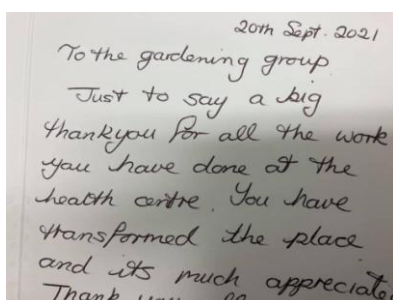 20th Sept. 2021
To the gardening group
Just to say a big
thankyou for all the work
you have done at the
health centre. You have
transformed the place
and its much appreciate
Thank you